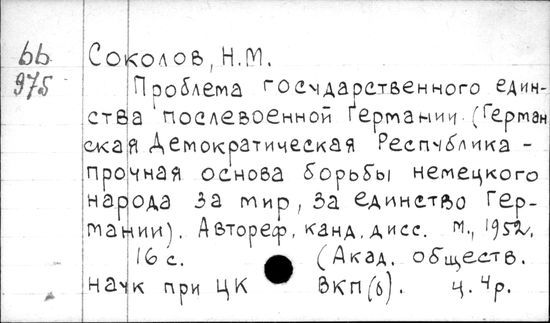 bb
975
Соколов, Н.М.
Проблема государственного един-
ства послевоенной Германии. (Герман
ская Демократическая Республика -
прочная основа борьбы немецкого
народа за мир, за единство Гер-
мании). Автореф. канд. дисс. М., 1952.
16 с. (Акад. обществ.
наук при ЦК ВКП(б). ц. 4р.